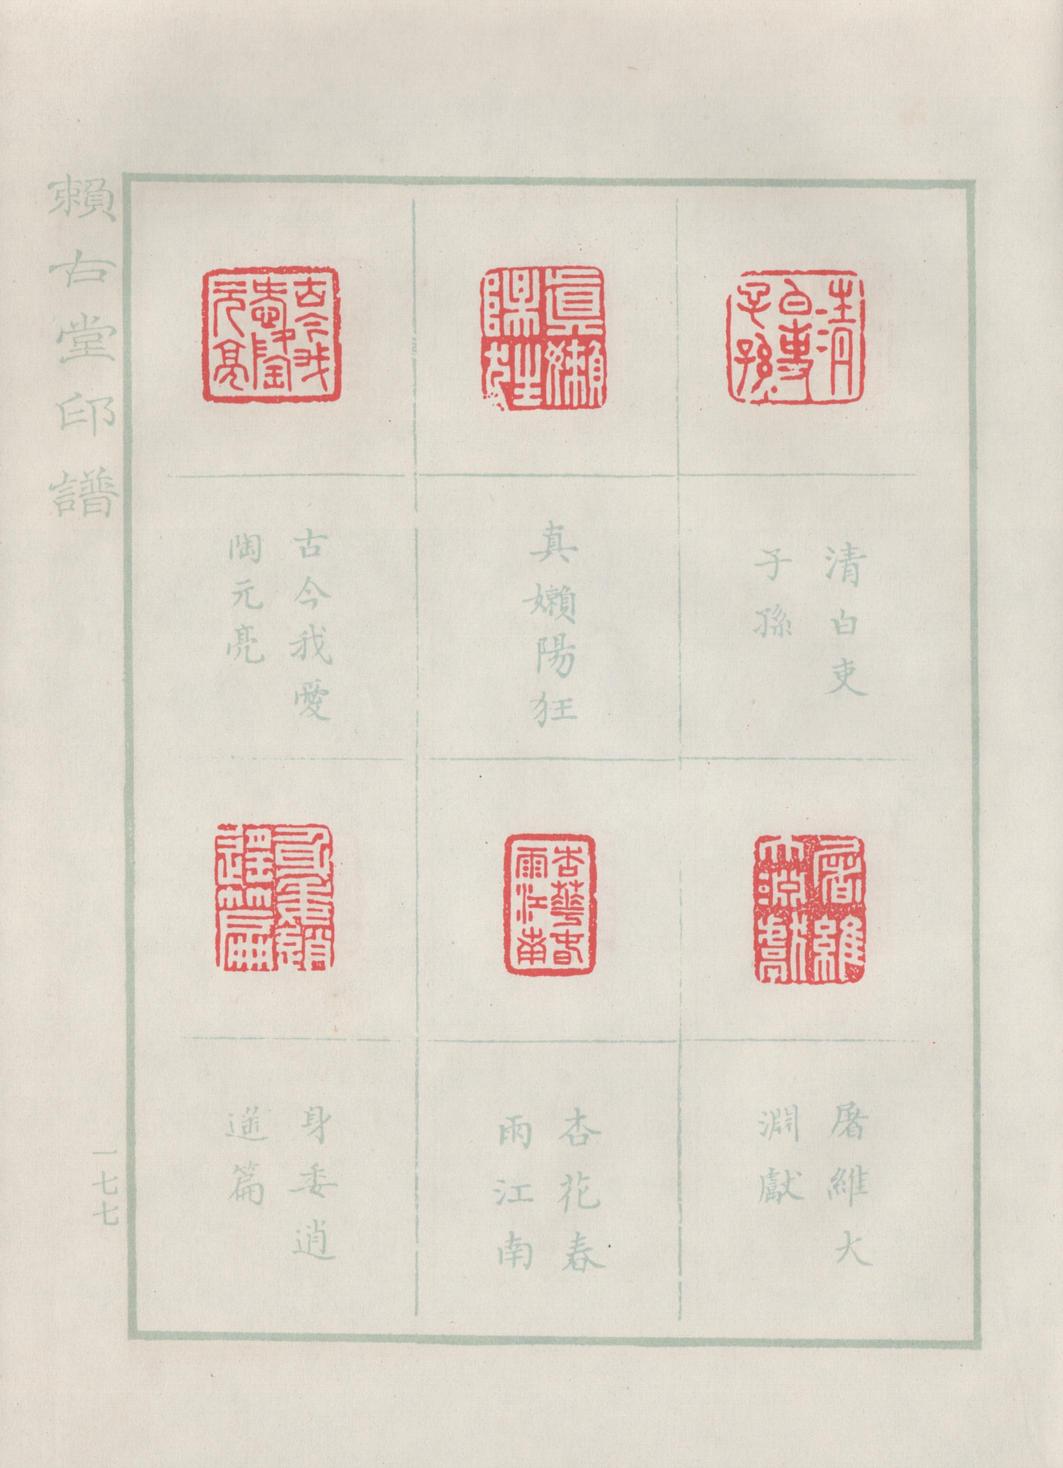 賴古堂印譜
清白吏
子孫
真嬾陽狂
古今我愛
陶元亮
屠維大
淵獻
杏花春
雨江南
身委逍
遥篇
一七七